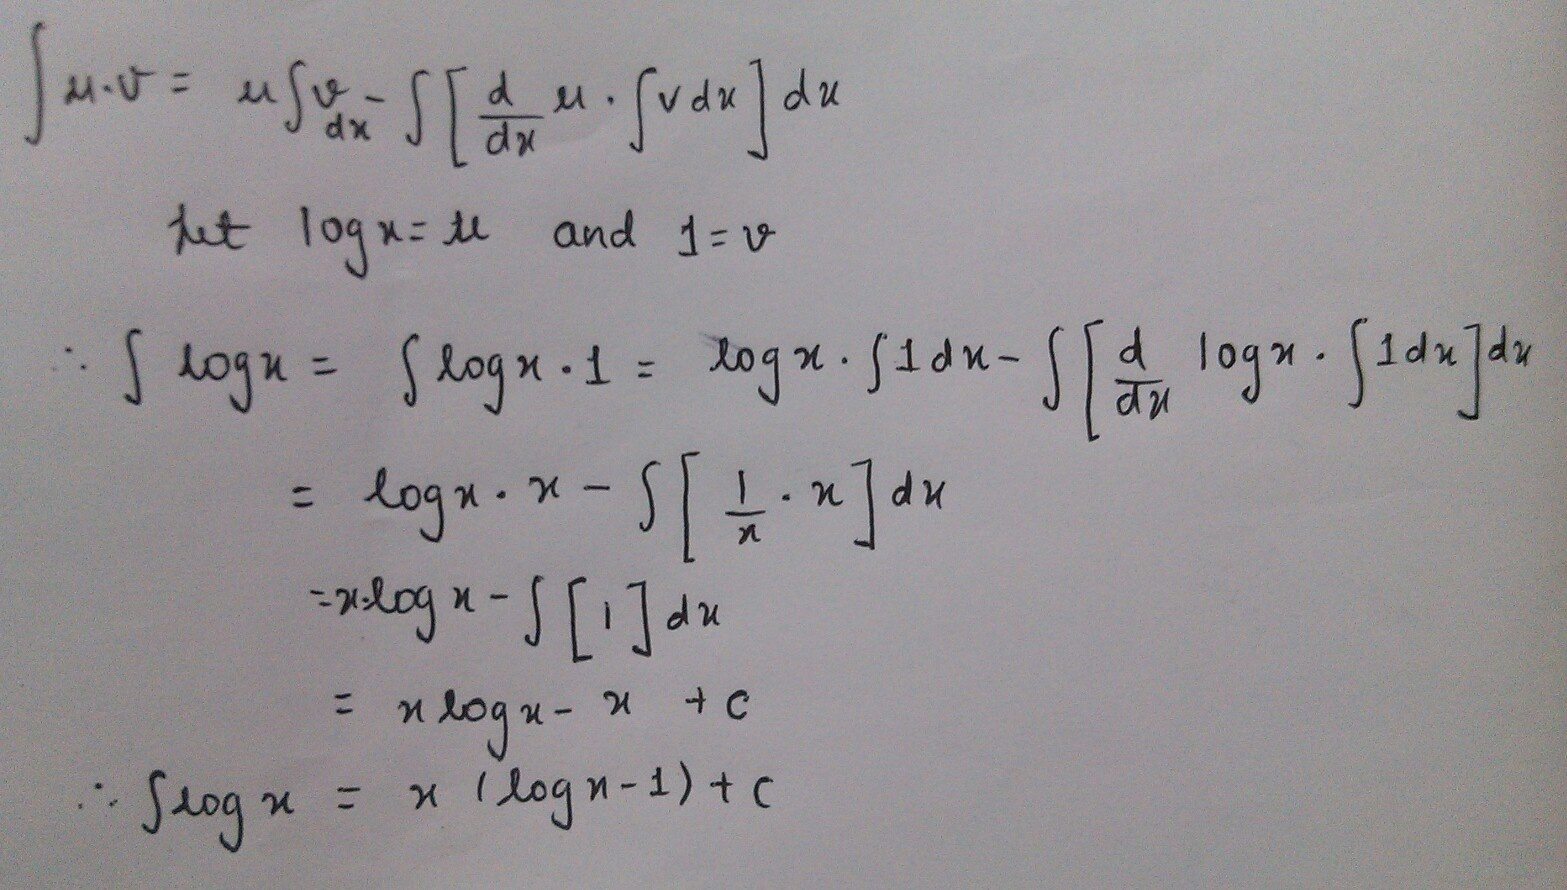 ∫ u·v = u∫v dx - ∫[d/dx u · ∫v dx] dx
Let log x = u and 1 = v
∴ ∫ log x = ∫ log x · 1 = log x · ∫1 dx - ∫[d/dx log x · ∫1 dx] dx
= log x · x - ∫[1/x · x] dx
= x·log x - ∫[1] dx
= x log x - x + c
∴ ∫ log x = x (log x - 1) + c